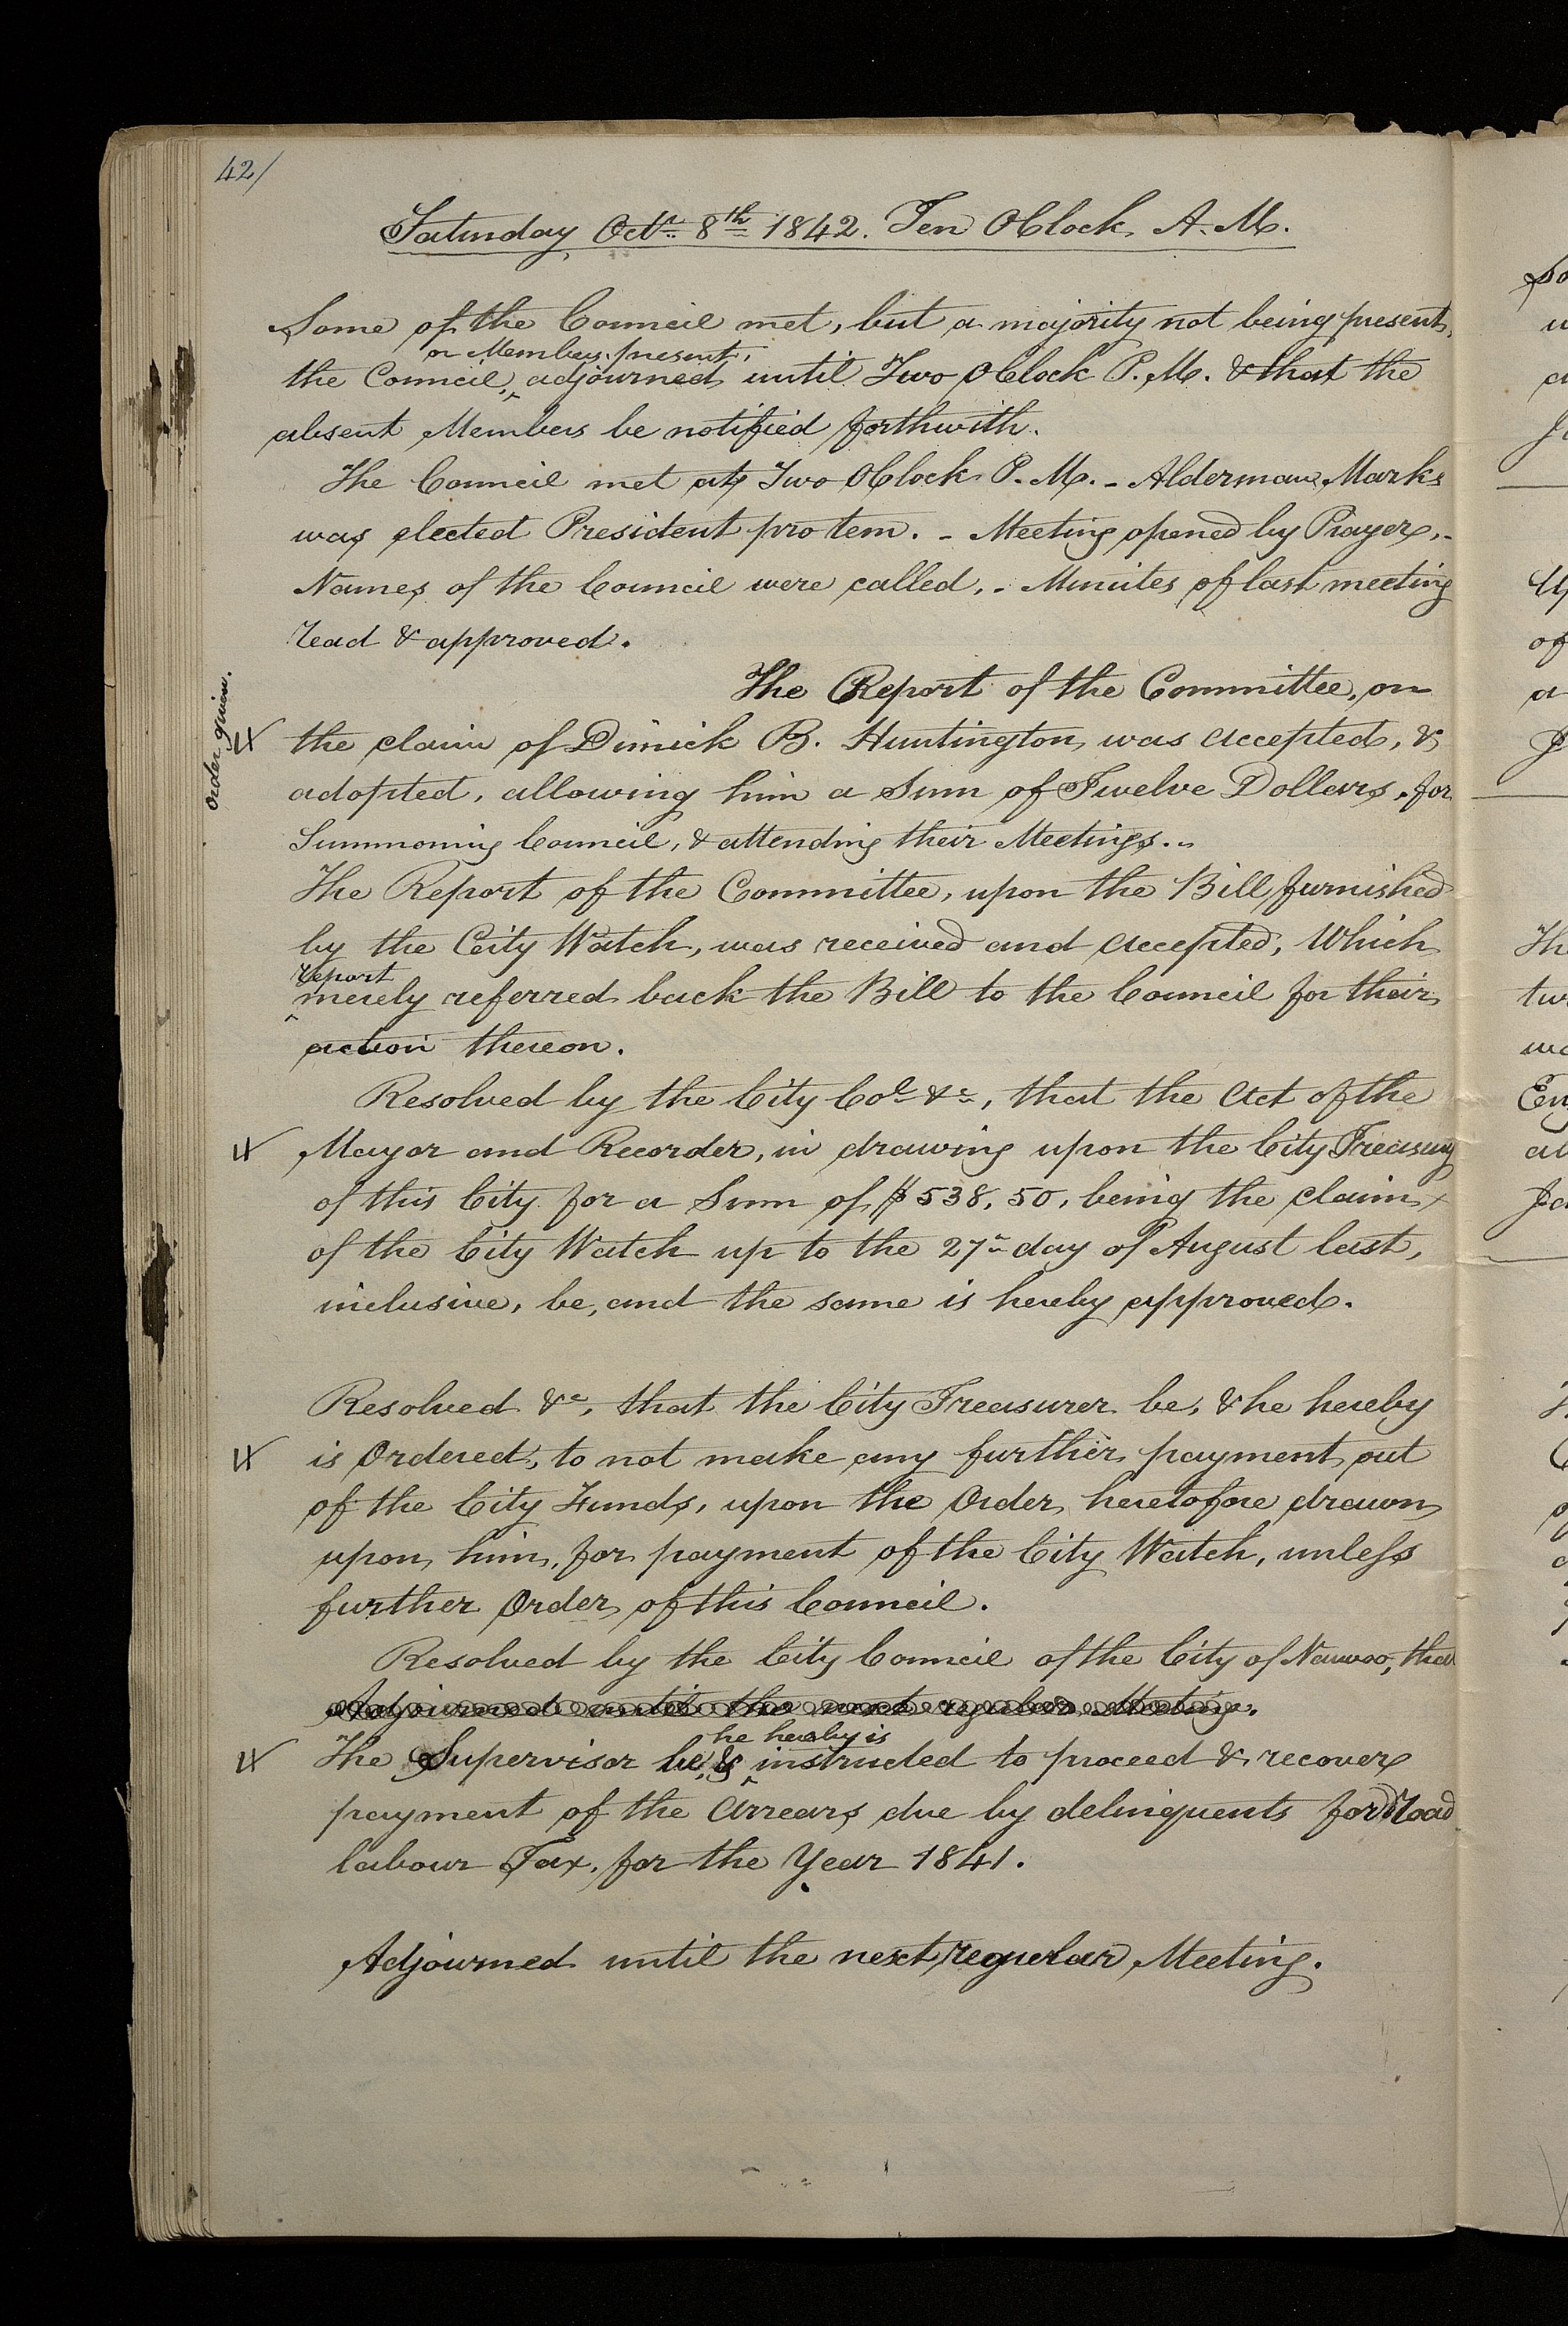 42/
Saturday Octr. 8th 1842. Ten OClock, A.M.
Some of the Council met, but a majority not being present,
or Members present,
the Council, adjourned until Two OClock P.M. & that the
absent Members be notified forthwith.
The Council met at Two OClock P.M. - Alderman Marks
was elected President pro tem. - Meeting opened by Prayer, -
Names of the Council were called, - Minutes of last meeting
read & approved.
The Report of the Committee, on
order given.
the claim of Dimick B. Huntington, was accepted, &
adopted, allowing him a Sum of Twelve Dollars, for
Summoning Council, & attending their Meetings. -
The Report of the Committee, upon the Bill furnished
by the City Watch, was received and accepted, Which
report
merely referred back the Bill to the Council for their
action thereon.
Resolved by the City Col. &c, that the Act of the
Mayor and Recorder, in drawing upon the City Treasury
of this City for a Sum of $538,50, being the claim
of the City Watch up to the 27th day of August last,
inclusive, be, and the same is hereby approved.
Resolved &c, that the City Treasurer be, & he hereby
is Ordered, to not make any further payment out
of the City Funds, upon the Order, heretofore drawn
upon him, for payment of the City Watch, unless
further Order of this Council.
Resolved by the City Council of the City of Nauvoo, that
Adjourned until the next regular Meeting.
he hereby is
The Supervisor be, & instructed to proceed & recover
payment of the Arrears due by delinquents for Road
labour Tax, for the Year 1841.
Adjourned until the next regular Meeting.